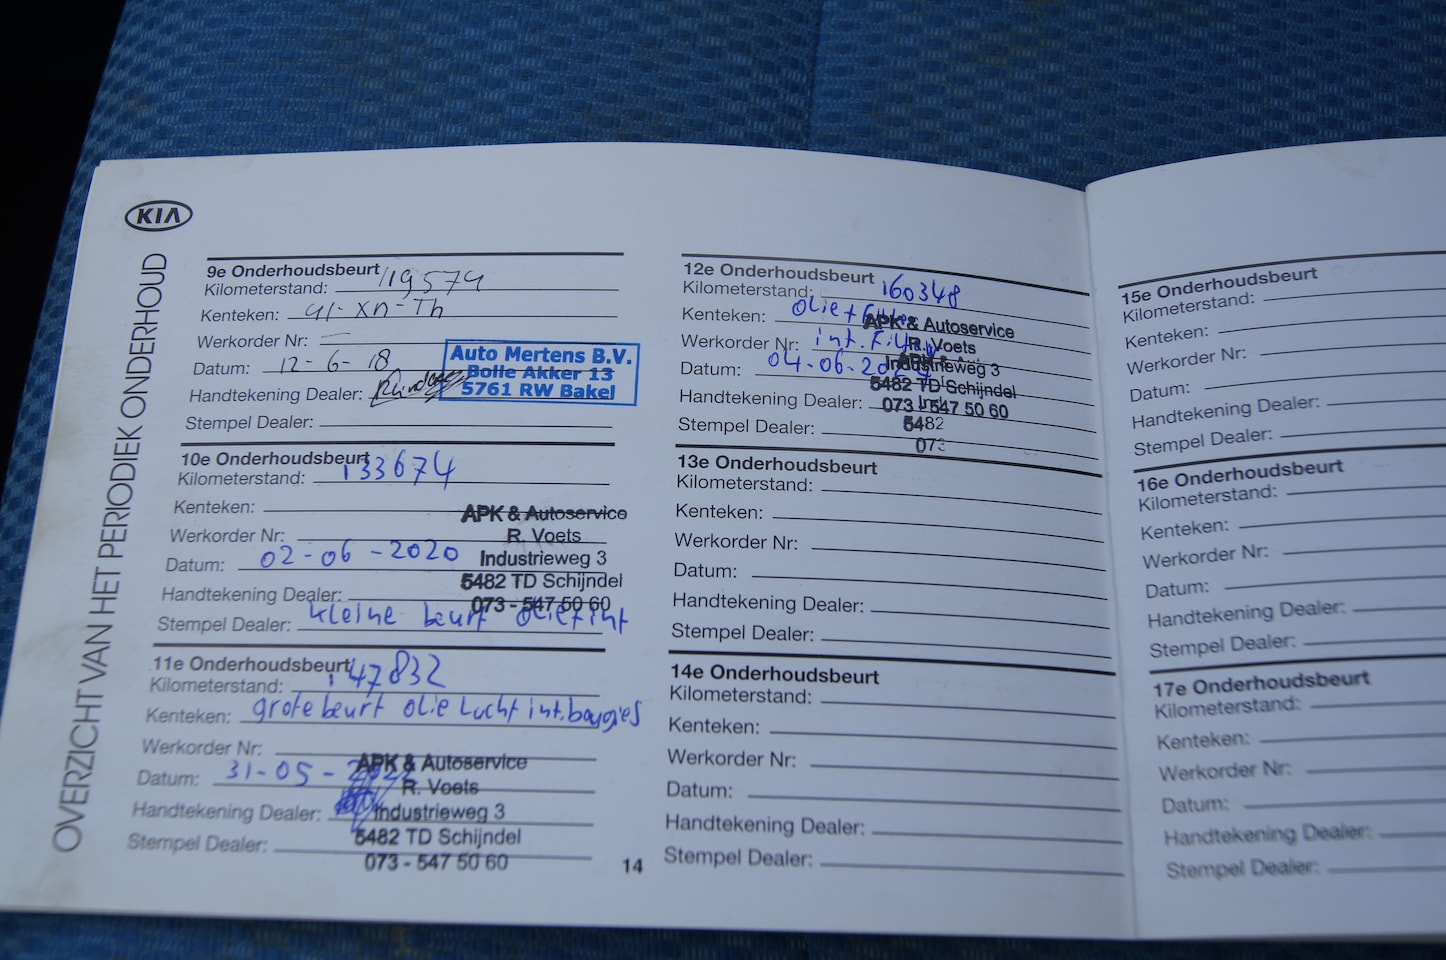 KIA
OVERZICHT VAN HET PERIODIEK ONDERHOUD
9e Onderhoudsbeurt
Kilometerstand: 119574
Kenteken: 41-XN-TH
Werkorder Nr:
Datum: 12-6-18
Handtekening Dealer:
Auto Mertens B.V.
Bolle Akker 13
5761 RW Bakel
Stempel Dealer:
10e Onderhoudsbeurt
Kilometerstand: 133674
Kenteken:
Werkorder Nr:
Datum: 02-06-2020
Handtekening Dealer:
APK & Autoservice
R. Voets
Industrieweg 3
5482 TD Schijndel
073 - 547 50 60
Stempel Dealer: kleine beurt olie+int
11e Onderhoudsbeurt
Kilometerstand: 147832
Kenteken: grote beurt olie Lucht int. bougies
Werkorder Nr:
Datum: 31-05-2022
Handtekening Dealer:
Stempel Dealer:
APK & Autoservice
R. Voets
Industrieweg 3
5482 TD Schijndel
073 - 547 50 60
14
12e Onderhoudsbeurt
Kilometerstand: 160348
Kenteken: olie+Filter
Werkorder Nr: int. Filter
Datum: 04-06-202
Handtekening Dealer:
Stempel Dealer:
APK & Autoservice
R. Voets
Industrieweg 3
5482 TD Schijndel
073 - 547 50 60
5482
073
13e Onderhoudsbeurt
Kilometerstand:
Kenteken:
Werkorder Nr:
Datum:
Handtekening Dealer:
Stempel Dealer:
14e Onderhoudsbeurt
Kilometerstand:
Kenteken:
Werkorder Nr:
Datum:
Handtekening Dealer:
Stempel Dealer:
15e Onderhoudsbeurt
Kilometerstand:
Kenteken:
Werkorder Nr:
Datum:
Handtekening Dealer:
Stempel Dealer:
16e Onderhoudsbeurt
Kilometerstand:
Kenteken:
Werkorder Nr:
Datum:
Handtekening Dealer:
Stempel Dealer:
17e Onderhoudsbeurt
Kilometerstand:
Kenteken:
Werkorder Nr:
Datum:
Handtekening Dealer:
Stempel Dealer: